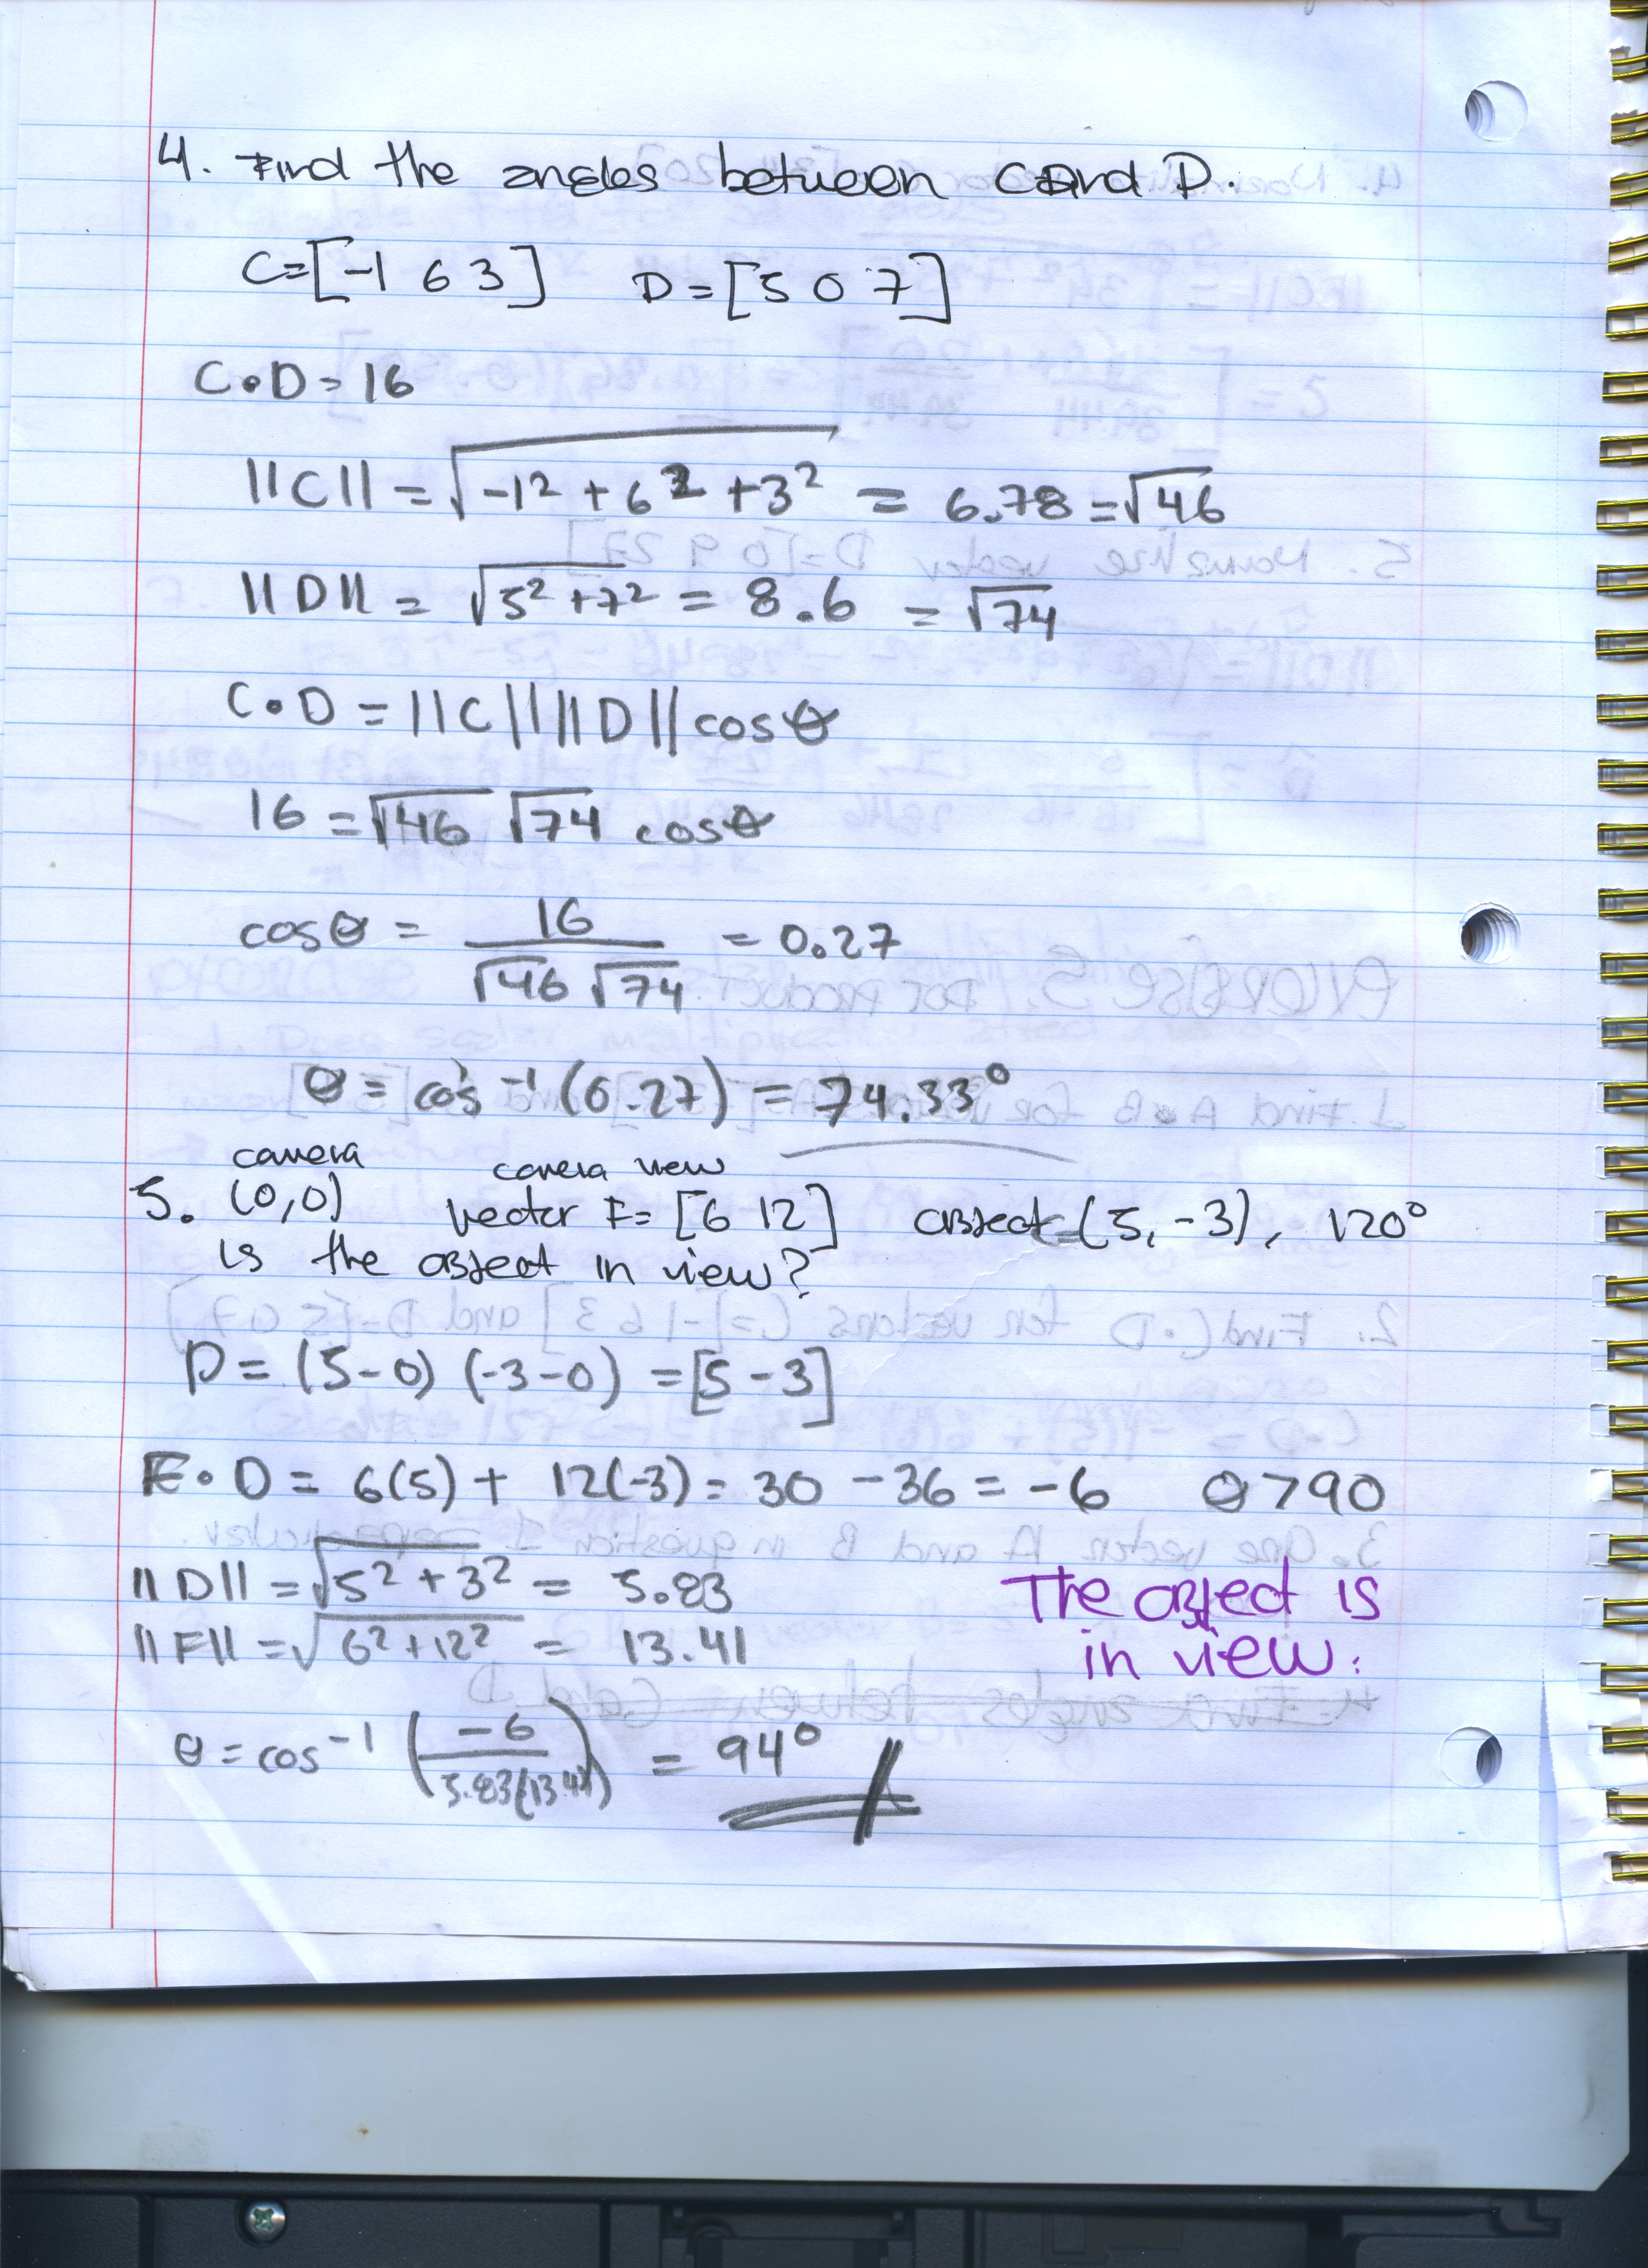 4. Find the angles between C and D.
C=[-1 6 3] D=[5 0 7]
C•D=16
||C|| = √-1² + 6² + 3² = 6.78 = √46
||D|| = √5²+7² = 8.6 = √74
C•D = ||C|| ||D|| cosθ
16 = √46 √74 cosθ
cosθ = 16 / √46 √74 = 0.27
θ = cos⁻¹ (0.27) = 74.33°
camera camera view
5. (0,0) vector F= [6 12] object=(5, -3), 120°
is the object in view?
D = (5-0) (-3-0) = [5 -3]
F•D = 6(5) + 12(-3) = 30 - 36 = -6 θ>90
||D|| = √5² + 3² = 5.83
The object is
||F|| = √6² + 12² = 13.41
in view.
θ = cos⁻¹ (-6 / 5.83(13.41)) = 94°